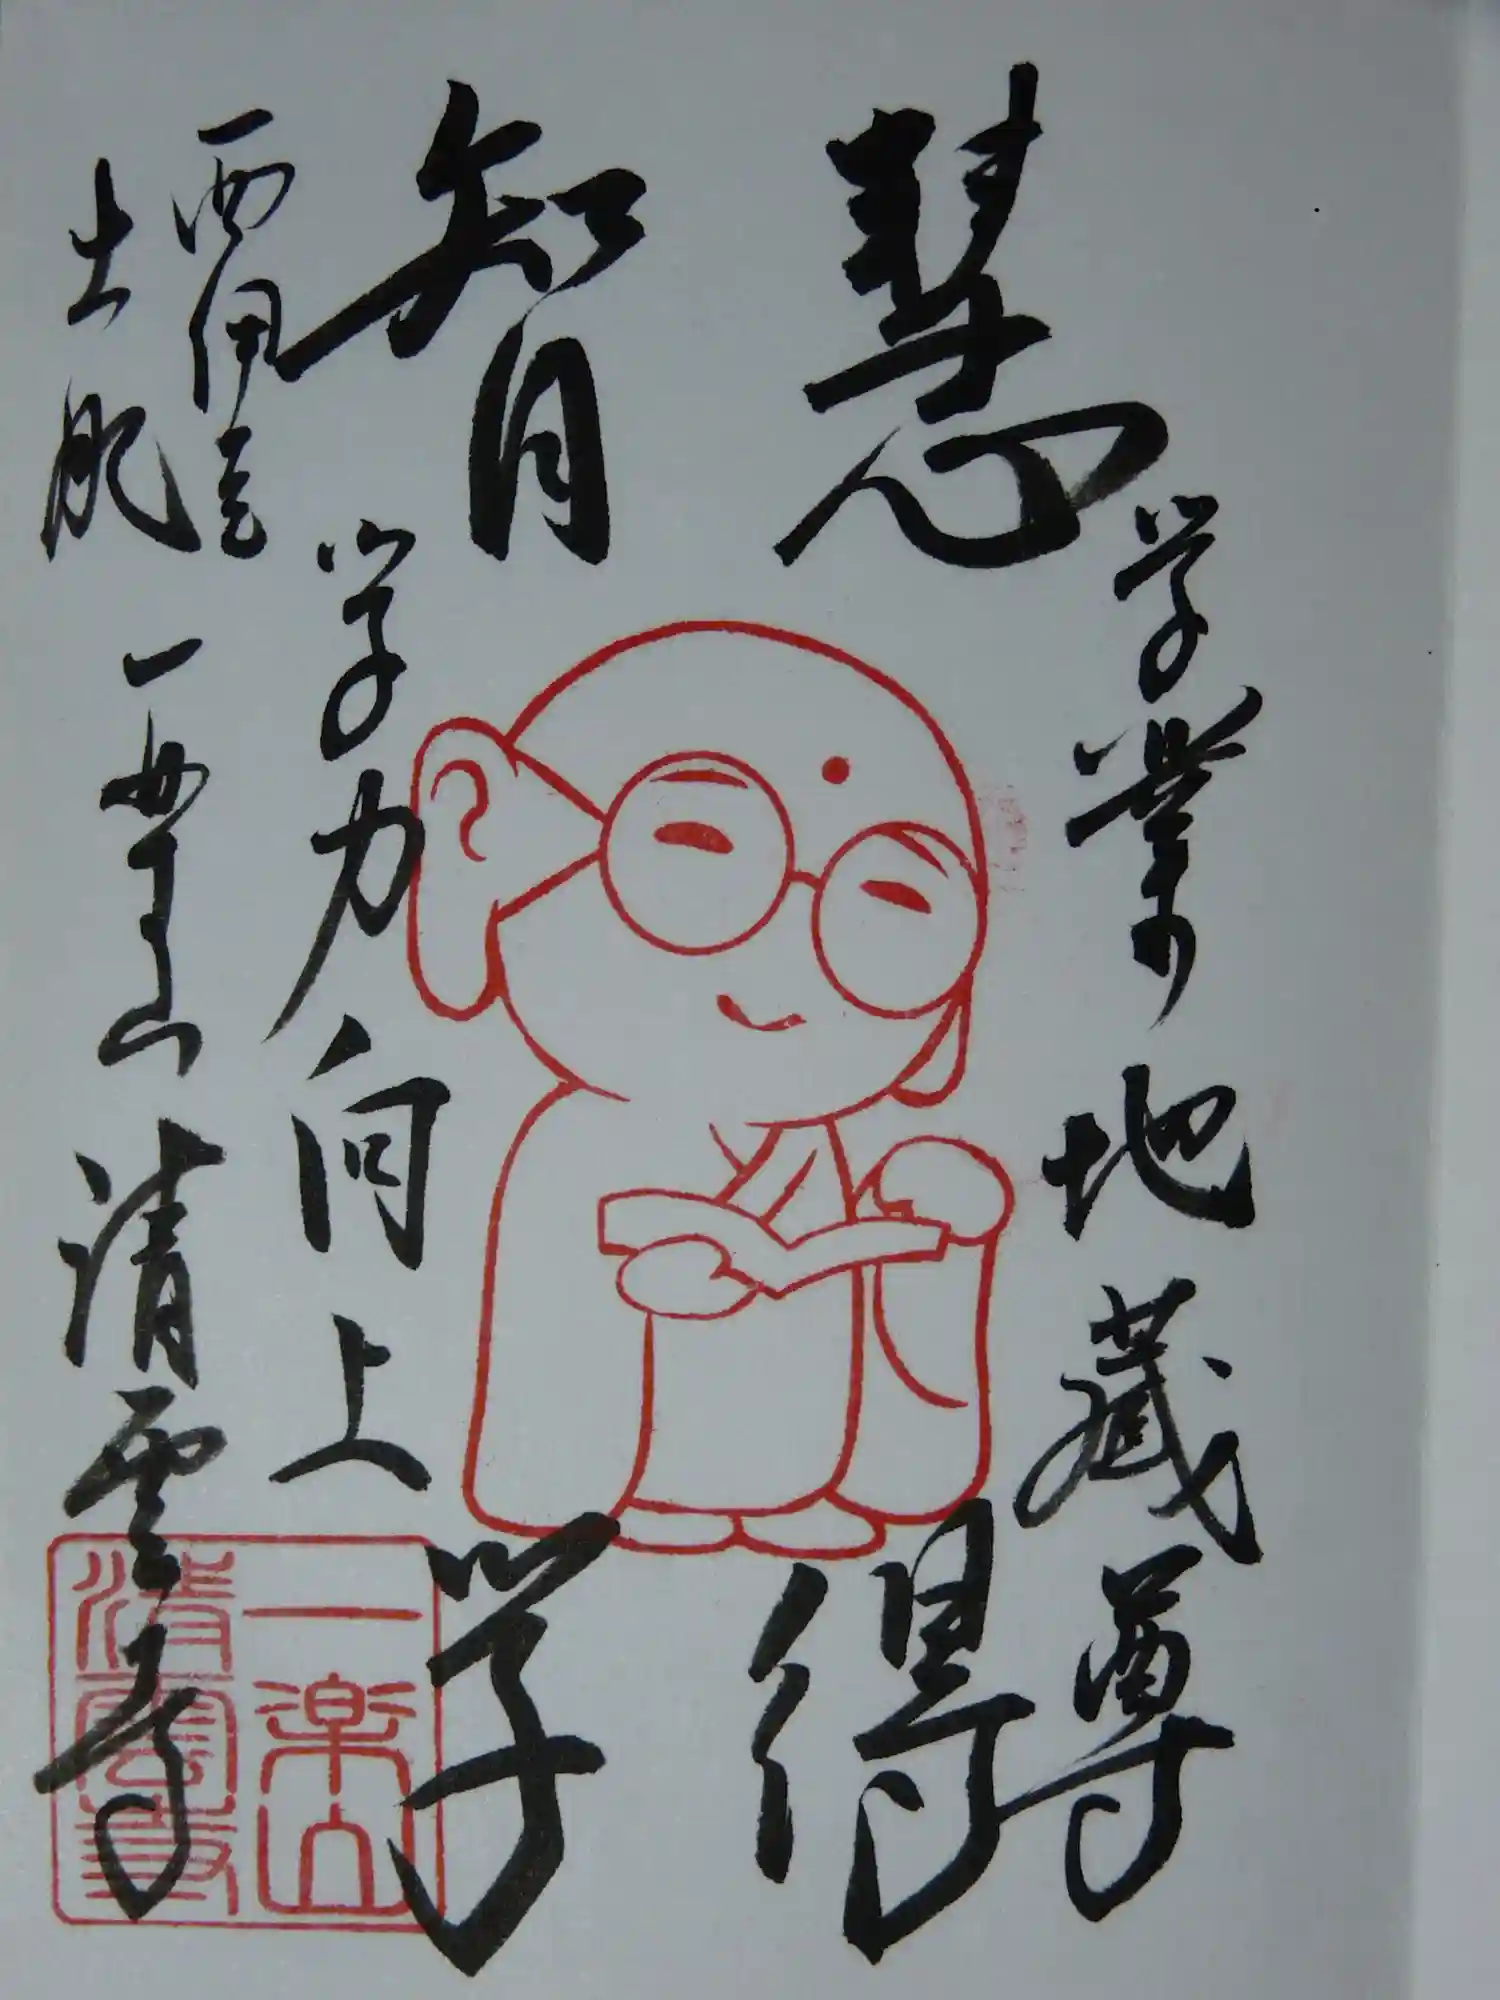 学業地蔵尊
慧得
智学
学力向上
西伊豆
土肥 一楽山 清雲寺
一楽山
清雲寺